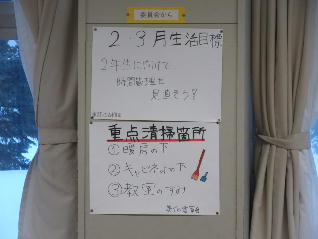 委員会から
2・3月生活目標
2年生に向けて
時間管理を
見直そう!
重点清掃箇所
①暖房の下
②キャビネットの下
③教室のすみ